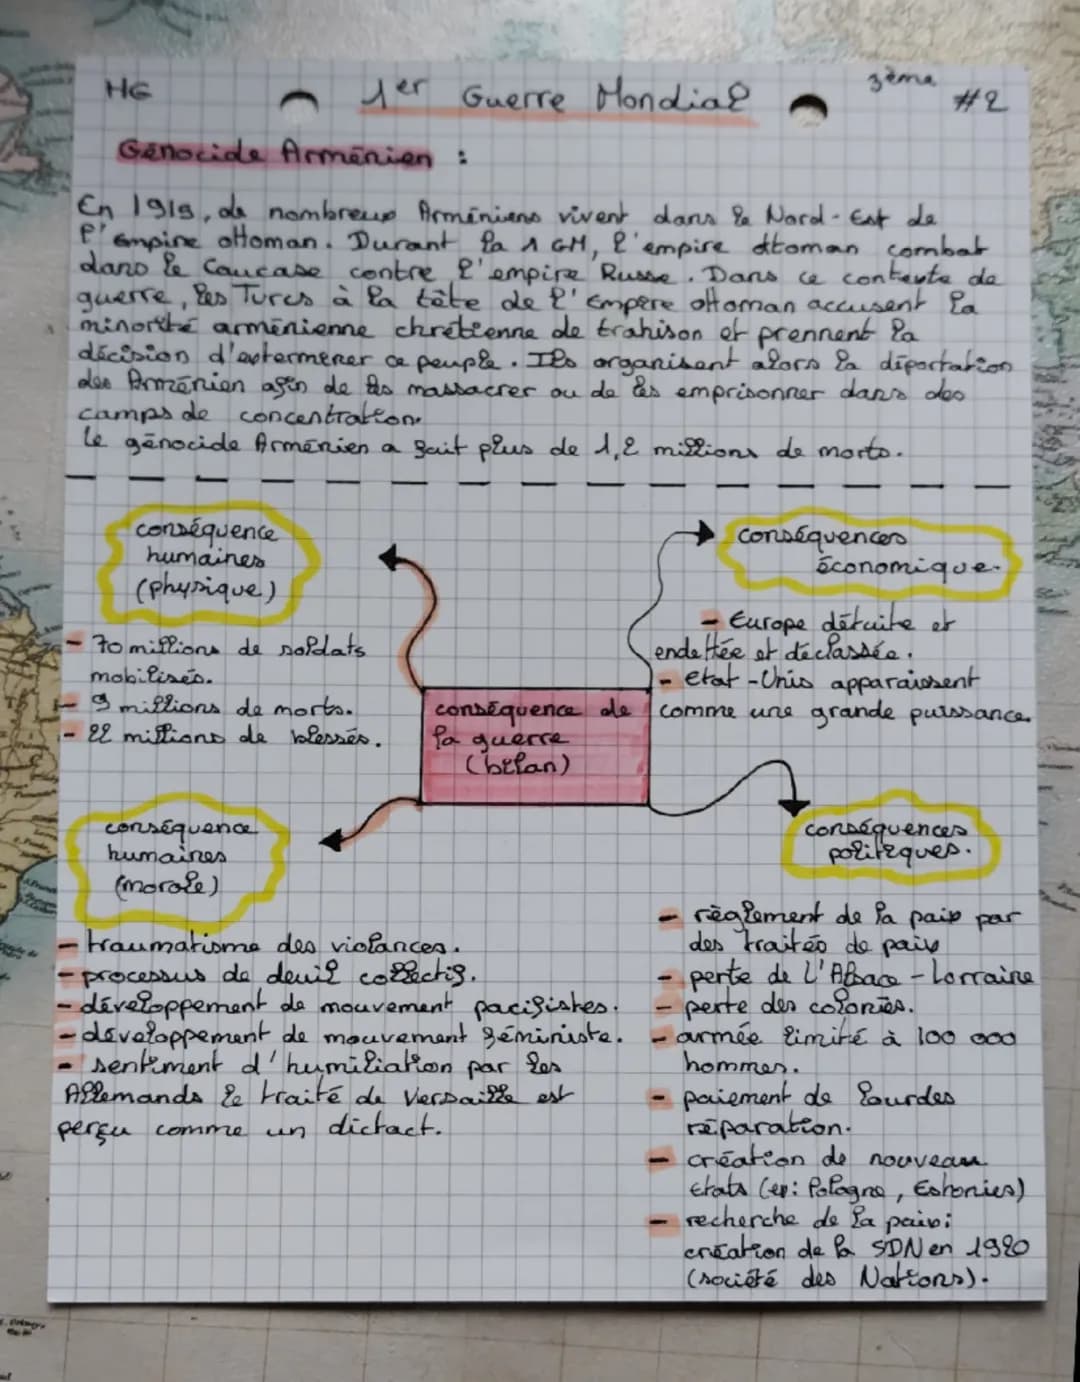 HG
1er Guerre Mondial
3ème
#2
Génocide Arménien :
En 1915, de nombreux Arméniens vivent dans le Nord-Est de
l'empire ottoman. Durant la 1 GM, l'empire ottoman combat
dans le Caucase contre l'empire Russe. Dans ce contexte de
guerre, les Turcs à la tête de l'Empère ottoman accusent la
minorité arménienne chrétienne de trahison et prennent la
décision d'exterminer ce peuple. Ils organisent alors la déportation
des Arménien afin de les massacrer ou de les emprisonner dans des
camps de concentration.
Le génocide Arménien a fait plus de 1,2 millions de morts.
conséquence
humaines
(physique)
- 70 millions de soldats
mobilisés.
- 9 millions de morts.
- 22 millions de blessés.
conséquences
économique.
- Europe détruite et
endettée et déclassée.
- etat-Unis apparaissent
comme une grande puissance.
conséquence de
la guerre
(bilan)
conséquence
humaines
(morale)
- traumatisme des violances.
- processus de deuil collectif.
- développement de mouvement pacifistes.
- développement de mouvement féministe.
- sentiment d'humiliation par les
Allemands le traité de Versaille est
perçu comme un dictact.
conséquences
politiques.
- règlement de la paix par
des traités de paix
- perte de L'Alsace-Lorraine
- perte des colonies.
- armée limité à 100 000
hommes.
- paiement de lourdes
réparation.
- création de nouveau
Etats (ex: Pologne, Estonies)
- recherche de la paix:
création de la SDN en 1920
(société des Nations).